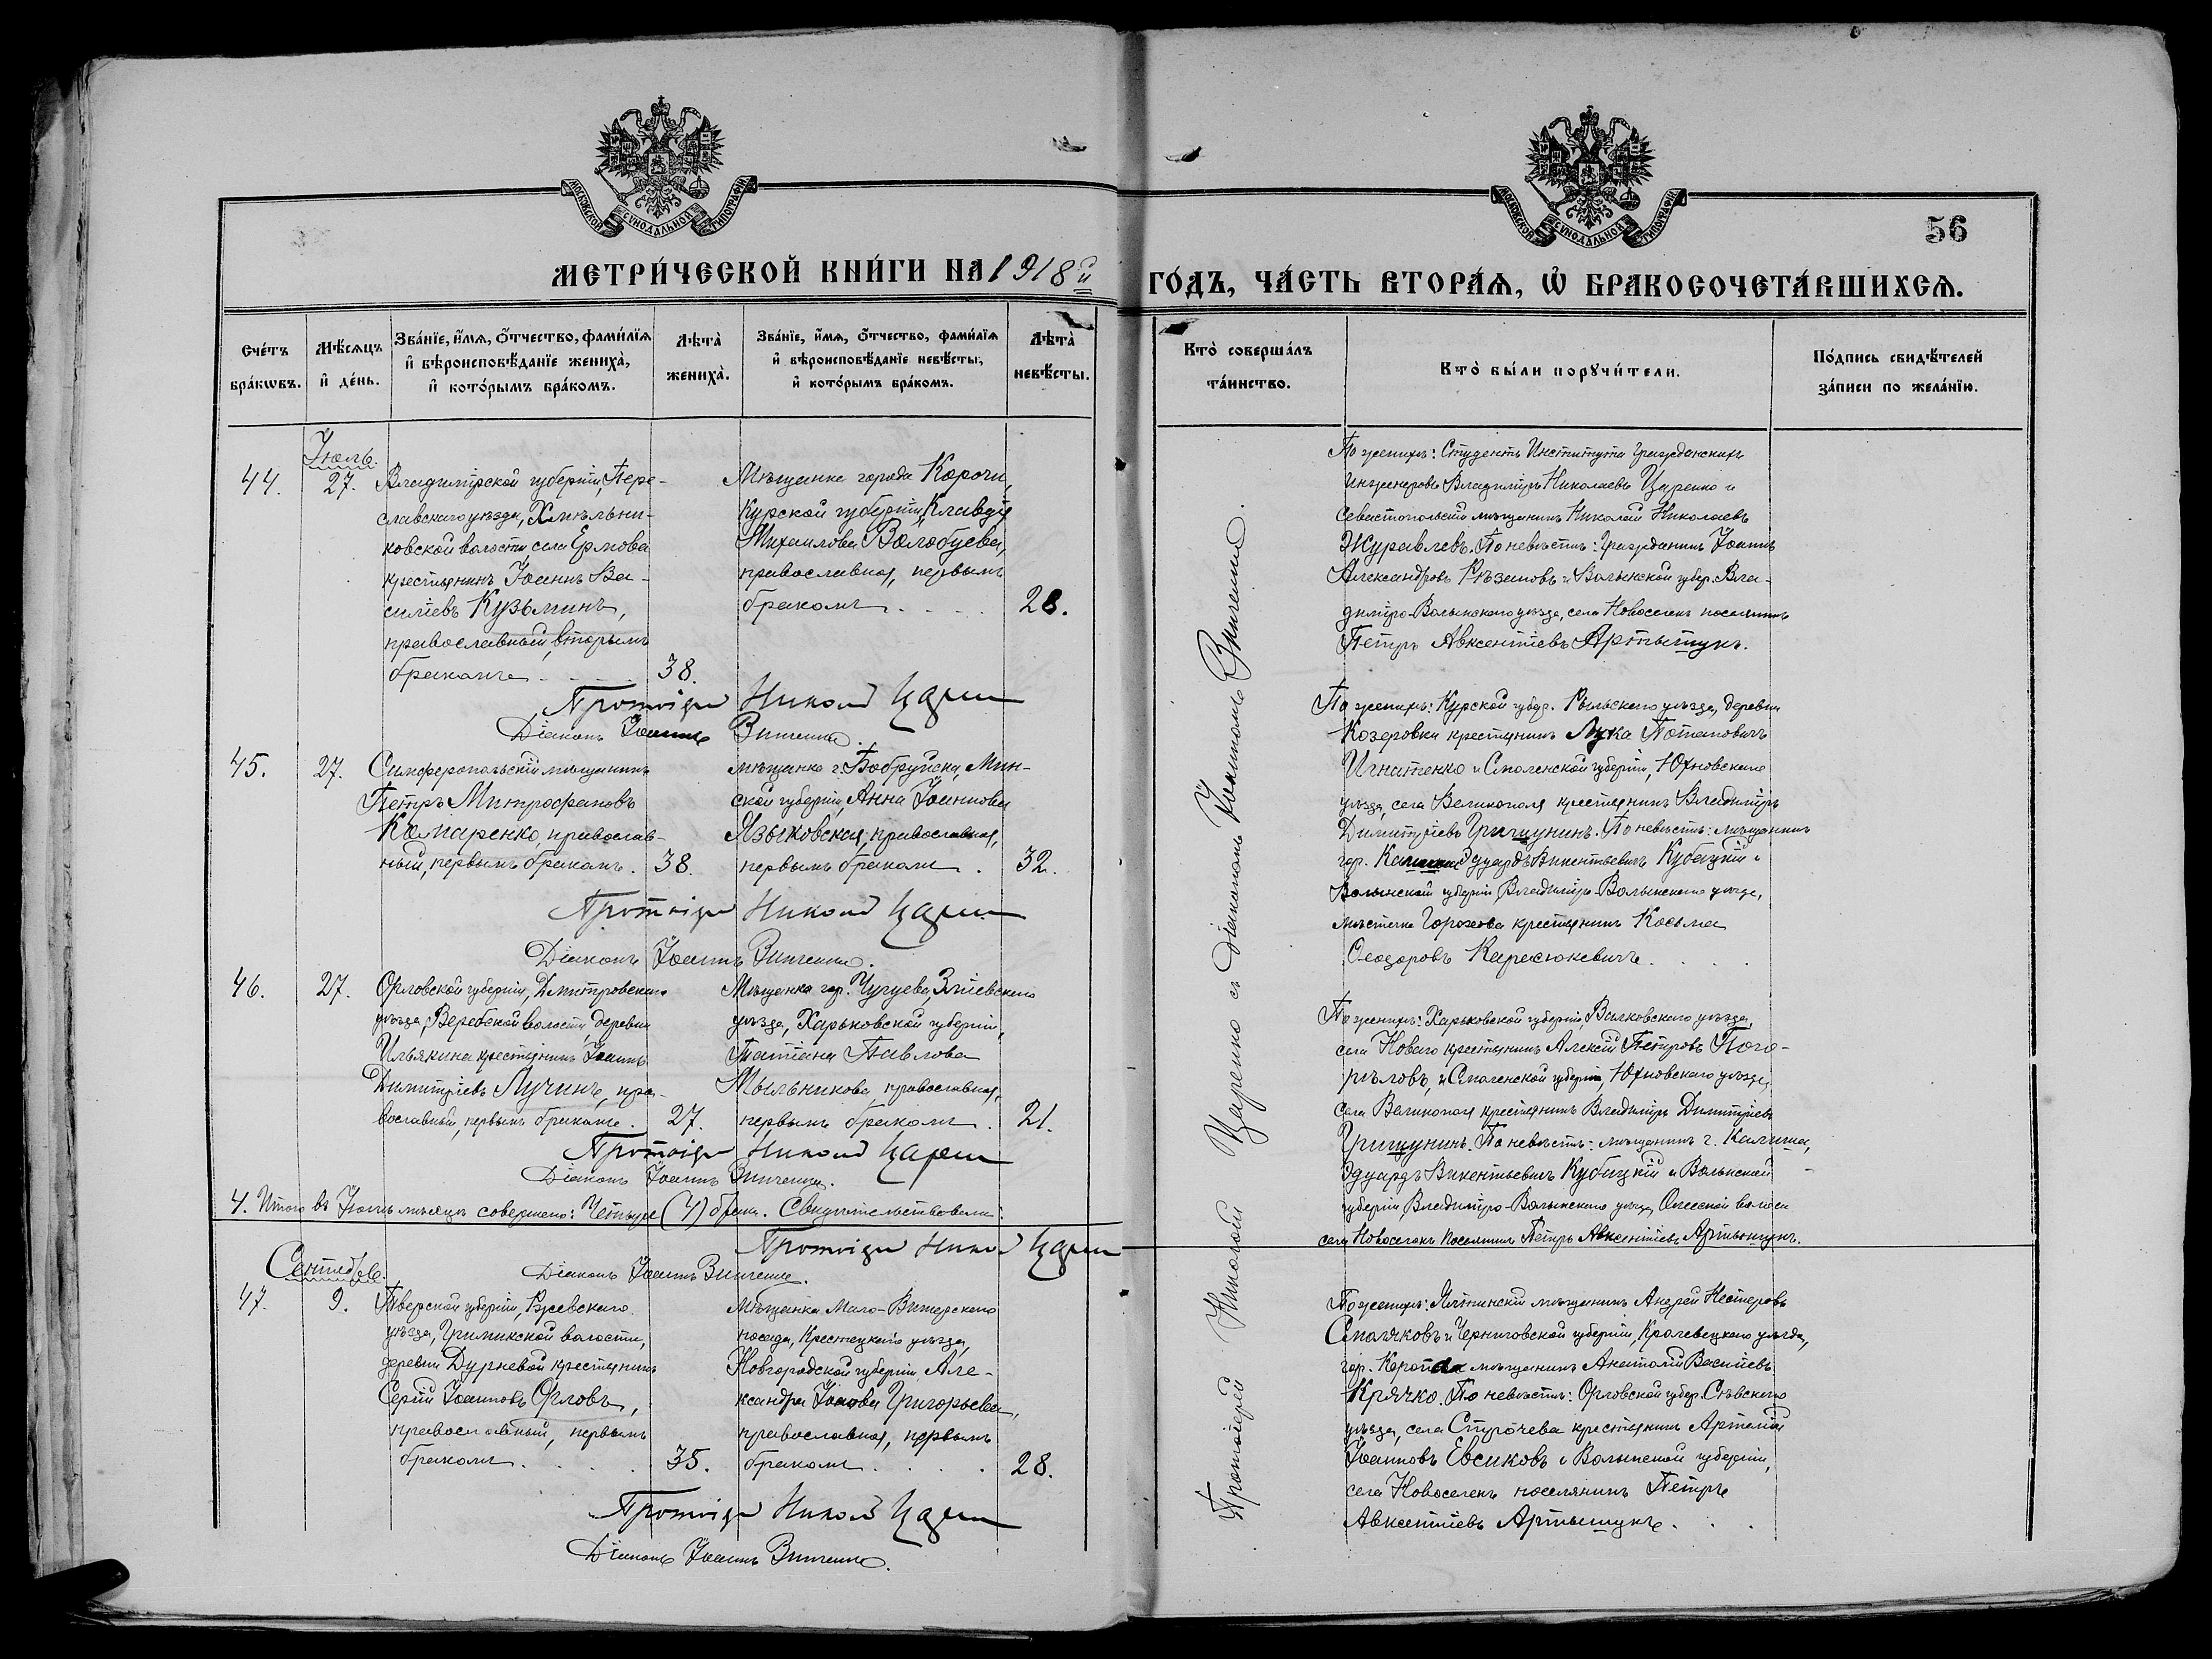 МОСКОВСКОЙ СѴНОДАЛЬНОЙ ТИПОГРАФІИ
МОСКОВСКОЙ СѴНОДАЛЬНОЙ ТИПОГРАФІИ
56
МЕТРИ́ЧЕСКОЙ КНИ́ГИ НА 1918й ГО́ДЪ, ЧА́СТЬ ВТОРА́Ѧ, Ѡ҆ БРАКОСОЧЕТА́ВШИХСѦ.
Сче́тъ бра́кѡвъ.
Мѣ́сѧцъ и҆ де́нь.
Зва́нїе, и҆́мѧ, ѻ҆́тчество, фами́лїѧ и҆ вѣроисповѣ́данїе жениха̀, и҆ кото́рымъ бра́комъ.
Лѣ́та жениха̀.
Зва́нїе, и҆́мѧ, ѻ҆́тчество, фами́лїѧ и҆ вѣроисповѣ́данїе невѣ́сты, и҆ кото́рымъ бра́комъ.
Лѣ́та невѣ́сты.
Кто̀ соверша́лъ та́инство.
Кто̀ бы́ли порꙋчи́тели.
По́дпись свидѣ́телей за́писи по жела́нїю.
Іюль.
44.
27.
Владимірской губерніи, Пере-
славскаго уѣзда, Хмѣльни-
ковской волости, села Ермова
крестьянинъ Іоаннъ Ва-
силіевъ Кузьминъ,
православный, вторымъ
бракомъ . . . .
38.
Мѣщанка города Корочи,
Курской губерніи, Клавдія
Михаилова Волобуева,
православная, первымъ
бракомъ . . . .
28.
По женихѣ: Студентъ Института Гражданскихъ
инженеровъ Владиміръ Николаевъ Царенко и
севастопольскій мѣщанинъ Николай Николаевъ
Журавлевъ. По невѣстѣ: гражданинъ Іоаннъ
Александровъ Рѣзановъ и Волынской губер. Вла-
диміро-Волынскаго уѣзда, села Новоселокъ поселянинъ
Петръ Авксентіевъ Артыщукъ.
Протоіерей Николай Царенко
Діаконъ Іоаннъ Зинченко.
45.
27.
Симферопольскій мѣщанинъ
Петръ Митрофановъ
Комаренко, православ-
ный, первымъ бракомъ.
38.
мѣщанка г. Бобруйска, Мин-
ской губерніи, Анна Іоаннова
Языковская, православная,
первымъ бракомъ .
32.
По женихѣ: Курской губер. Рыльскаго уѣзда, деревни
Козеровки крестьянинъ Лука Потаповичъ
Игнатенко и Смоленской губерніи, Юхновскаго
уѣзда, села Великополя крестьянинъ Владиміръ
Димитріевъ Грищунинъ. По невѣстѣ: мѣщанинъ
гор. Калиша Эдуардъ Викентьевичъ Кубацкій и
Волынской губерніи, Владиміро-Волынскаго уѣзда,
мѣстечка Горохова крестьянинъ Косьма
Ѳеодоровъ Карасюкевичъ . . .
Протоіерей Николай Царенко
Діаконъ Іоаннъ Зинченко.
46.
27.
Орловской губерніи, Дмитровскаго
уѣзда, Веребской волости, деревни
Ильякина крестьянинъ Іоаннъ
Димитріевъ Лучинъ, пра-
вославный, первымъ бракомъ.
27.
Мѣщанка гор. Чугуева, Зміевскаго
уѣзда, Харьковской губерніи,
Татіана Павлова
Мыльникова, православная,
первымъ бракомъ .
21.
По женихѣ: Харьковской губерніи Валковскаго уѣзда,
села Новаго крестьянинъ Алексій Петровъ Пого-
рѣловъ, и Смоленской губерніи, Юхновскаго уѣзда,
села Великополя крестьянинъ Владиміръ Димитріевъ
Грищунинъ. По невѣстѣ: мѣщанинъ г. Калиша,
Эдуардъ Викентьевичъ Кубацкій и Волынской
губерніи, Владиміро-Волынскаго уѣзда, волости
села Новоселокъ поселянинъ Петръ Авксентіевъ Артыщукъ.
Протоіерей Николай Царенко
Діаконъ Іоаннъ Зинченко.
4. Итого въ Іюлѣ мѣсяцѣ совершено: Четыре (4) брака. Свидѣтельствовали:
Протоіерей Николай Царенко
Діаконъ Іоаннъ Зинченко.
Сентябрь.
47.
9.
Тверской губерніи, Ржевскаго
уѣзда, волости,
деревни Дурневой крестьянинъ
Сергій Іоанновъ Орловъ,
православный, первымъ
бракомъ . . . .
35.
Мѣщанка Мало-Вишерскаго
посада, Крестецкаго уѣзда,
Новгородской губерніи, Але-
ксандра Іоанова Григорьева,
православная, первымъ
бракомъ . . . .
28.
По женихѣ: Ялтинскій мѣщанинъ Андрей Нестеровъ
Смолчковъ и Черниговской губерніи, Кролевецкаго уѣзда,
гор. Коропа мѣщанинъ Анатолій Васильевъ
Крячко. По невѣстѣ: Орловской губер. Сѣвскаго
уѣзда, села Строчева крестьянинъ Артемій
Іоанновъ Евсиковъ и Волынской губерніи,
села Новоселокъ поселянинъ Петръ
Авксентіевъ Артыщукъ . . .
Протоіерей Николай Царенко
Діаконъ Іоаннъ Зинченко.
Протоіерей Николай Царенко съ Діакономъ Іоанномъ Зинченко.